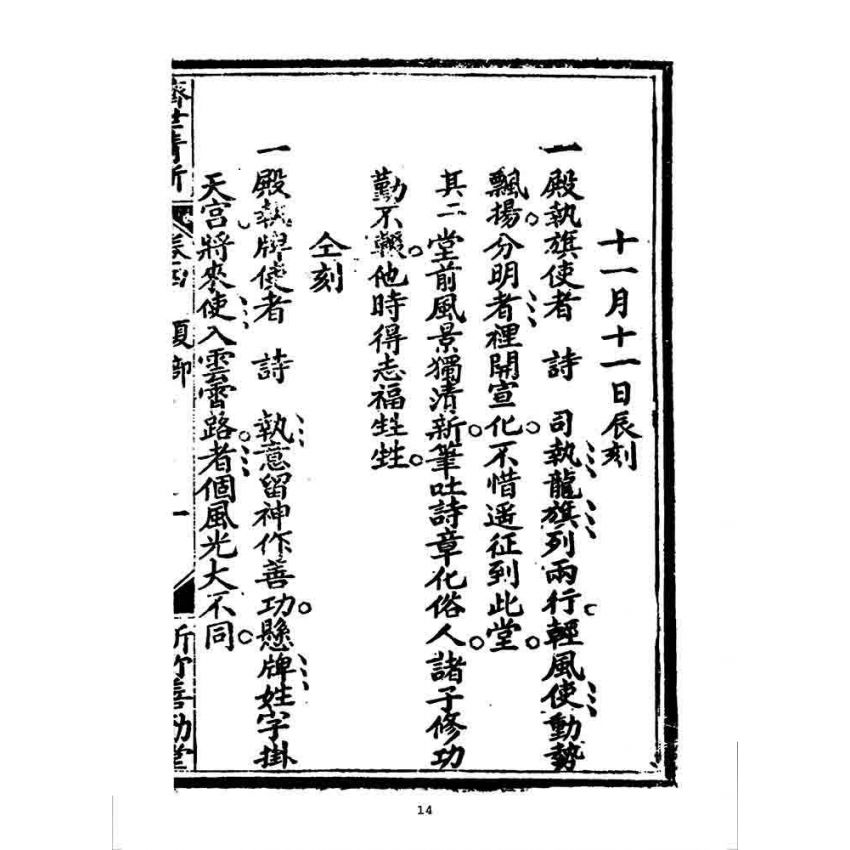 十一月十一日辰刻
一殿執旗使者 詩 司執龍旗列兩行。輕風使動勢
飄揚。分明者裡開宣化。不惜遥征到此堂。
其二 堂前風景獨清新。筆吐詩章化俗人。諸子修功
勤不輟。他時得志福甡甡。
仝刻
一殿執牌使者 詩 執意留神作善功。懸牌姓字掛
天宮。將來使入雲霄路。者個風光大不同。
卷
善
堂
14